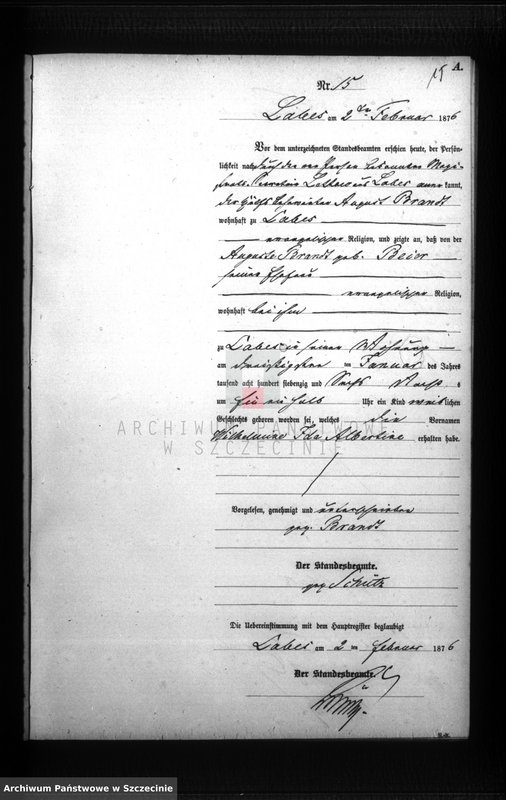 15 A.
Nr. 15
Labes am 2ten Februar 1876
Vor dem unterzeichneten Standesbeamten erschien heute, der Persön-
lichkeit nach durch den von Person bekannten Magi-
strats Secretair aus Labes anerkannt,
der August Brandt
wohnhaft zu Labes
evangelischer Religion, und zeigte an, daß von der
Auguste Brandt geb. Beier
seiner Ehefrau
evangelischer Religion,
wohnhaft bei ihm
zu Labes in seiner Wohnung
am dreißigsten ten Januar des Jahres
tausend acht hundert siebenzig und Sechs Nachts
um ein halb Uhr ein Kind weiblichen
Geschlechts geboren worden sei, welches die Vornamen
Wilhelmine Ida Albertine erhalten habe.
ARCHIWUM PAŃSTWOWE
W SZCZECINIE
Vorgelesen, genehmigt und unterschrieben
gez. Brandt
Der Standesbeamte.
gez. Schütz
Die Uebereinstimmung mit dem Hauptregister beglaubigt
Labes am 2 ten Februar 1876
Der Standesbeamte.
Archiwum Państwowe w Szczecinie